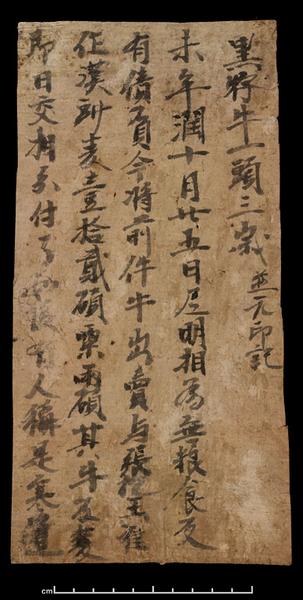 黑牸牛一頭三歲 並无印記
未年潤十月廿五日尼明相為無粮食及
有債負今將前件牛出賣与張抱玉准
作漢㪷麦壹拾貳碩粟兩碩其牛及麦
即日交相分付了如後有人稱是寒盜